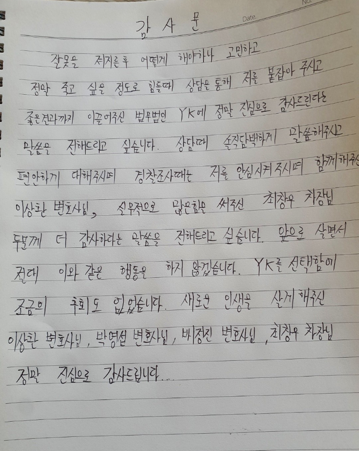 감사문
잘못을 저지른 후 어떻게 해야하나 고민하고
정말 죽고 싶을 정도로 힘들때 상담을 통해 저를 붙잡아 주시고
좋은결과까지 이끌어주신 법무법인 YK에 정말 진심으로 감사드린다는
말씀을 전해드리고 싶습니다. 상담때 솔직담백하게 말씀해주시고
편안하게 대해주시며 경찰조사때는 저를 안심시켜주시며 함께해주신
이상환 변호사님, 실무적으로 많은힘을 써주신 최창우 차장님
두분께 더 감사하다는 말씀을 전해드리고 싶습니다. 앞으로 살면서
절대 이와 같은 행동은 하지 않겠습니다. YK를 선택함에
조금의 후회도 없었습니다. 새로운 인생을 살게 해주신
이상환 변호사님, 박영섭 변호사님, 배정진 변호사님, 최창우 차장님
정말 진심으로 감사드립니다...